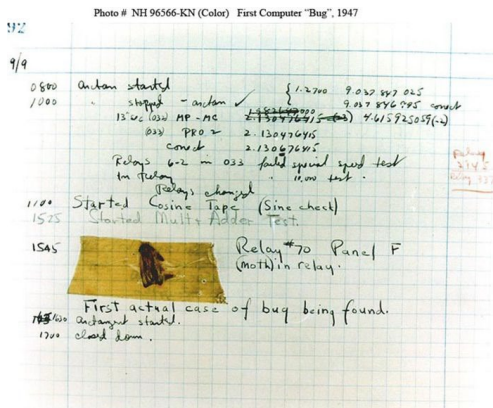 Photo # NH 96566-KN (Color) First Computer "Bug", 1947
92
9/9
0800 antan started { 1.2700 9.037 847 025
1000 " stopped - antan ✓ 9.037 846 995 conect
13"uc (032) MP - MC 2.130476415 (-3) 4.615925059(-2)
(033) PRO 2 2.130476415
conect 2.130676415
Relays 6-2 in 033 failed special speed test
in relay " 10,000 test.
Relays changed
1100 Started Cosine Tape (Sine check)
1525 Started Mult+ Adder Test.
1545 Relay #70 Panel F
(moth) in relay.
First actual case of bug being found.
1630 antangent started.
1700 closed down.